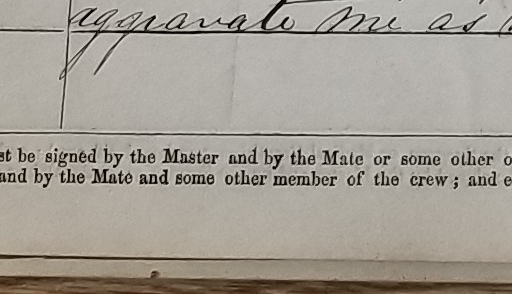 aggravate me as
st be signed by the Master and by the Mate or some other o
and by the Mate and some other member of the crew; and e